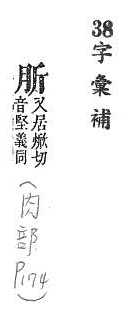 38字彙補
肵又居焮切
音堅義同
(肉部P174)